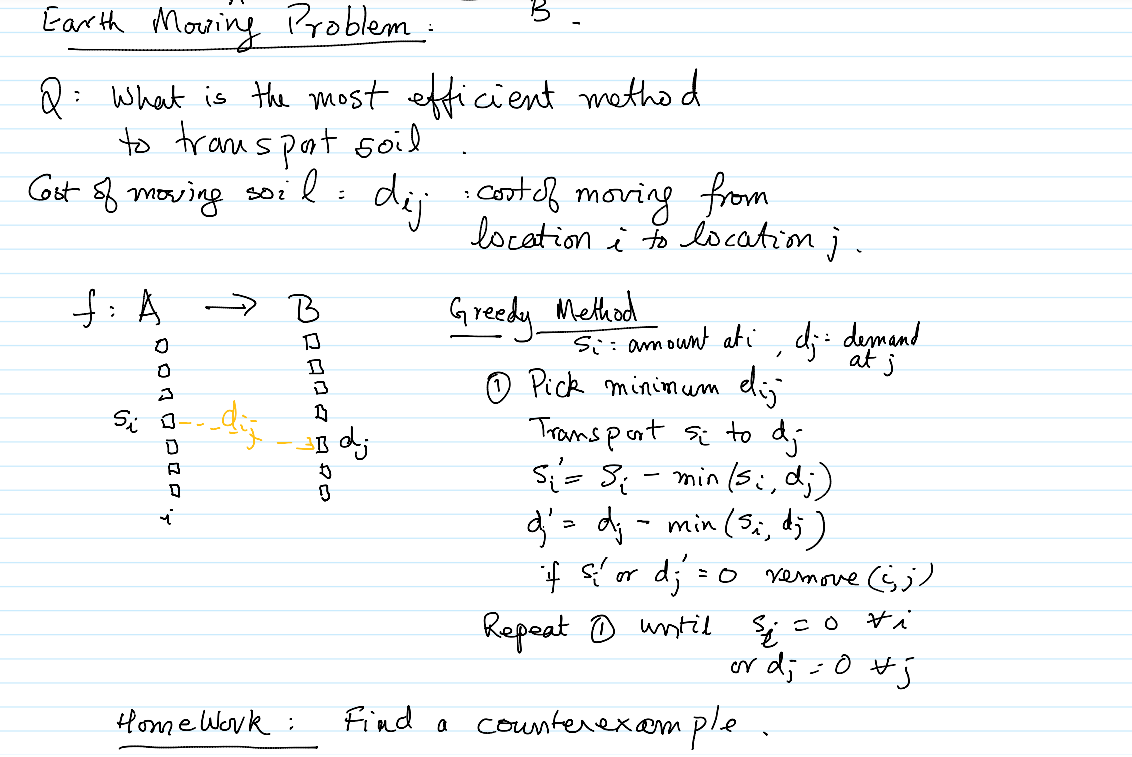 Earth Moving Problem :
B
Q: What is the most efficient method
to transport soil.
Cost of moving soil : dij : cost of moving from
location i to location j.
f : A → B
Greedy Method
si : amount at i , dj : demand
at j
① Pick minimum dij
si dij dj
Transport si to dj
si' = si - min (si, dj)
dj' = dj - min (si, dj)
i
if si' or dj' = 0 remove (i,j)
Repeat ① until si = 0 ∀ i
or dj = 0 ∀ j
HomeWork : Find a counterexample.